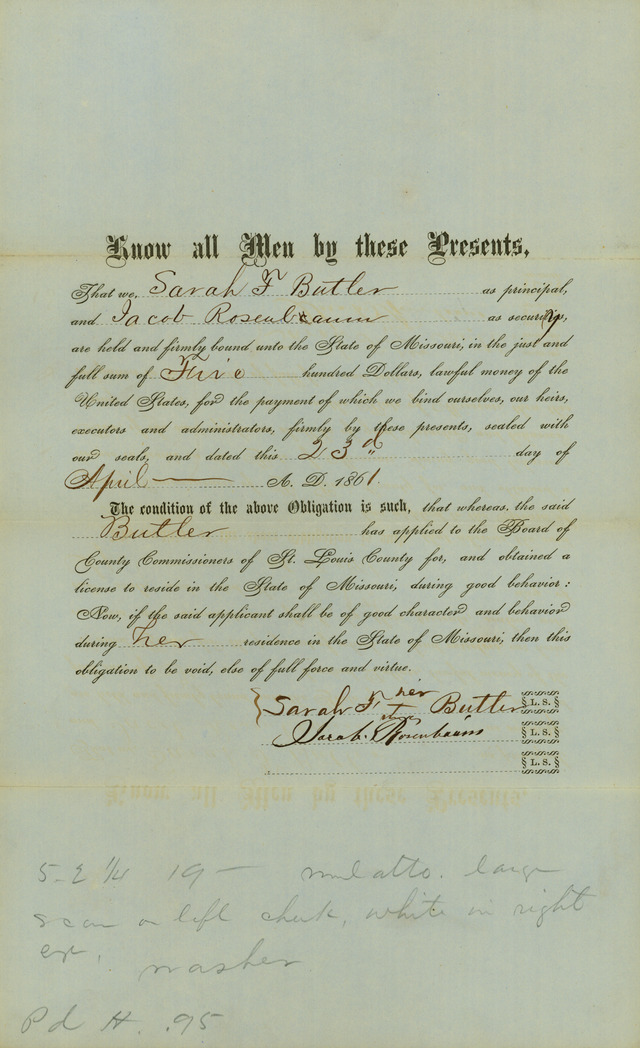 Know all Men by these Presents,
That we, Sarah F Butler as principal,
and Jacob Rosenbaum as security,
are held and firmly bound unto the State of Missouri, in the just and
full sum of Five hundred Dollars, lawful money of the
United States, for the payment of which we bind ourselves, our heirs,
executors and administrators, firmly by these presents, sealed with
our seals, and dated this 23d day of
April A. D. 1861.
The condition of the above Obligation is such, that whereas, the said
Butler has applied to the Board of
County Commissioners of St. Louis County for, and obtained a
license to reside in the State of Missouri, during good behavior:
Now, if the said applicant shall be of good character and behavior
during her residence in the State of Missouri, then this
obligation to be void, else of full force and virtue.
her
Sarah F + Butler L. S.
Rosenbaum L. S.
L. S.
5-2 1/4 19 - mulatto. large
scar on left cheek, white in right
eye. washer
Pd H. .95